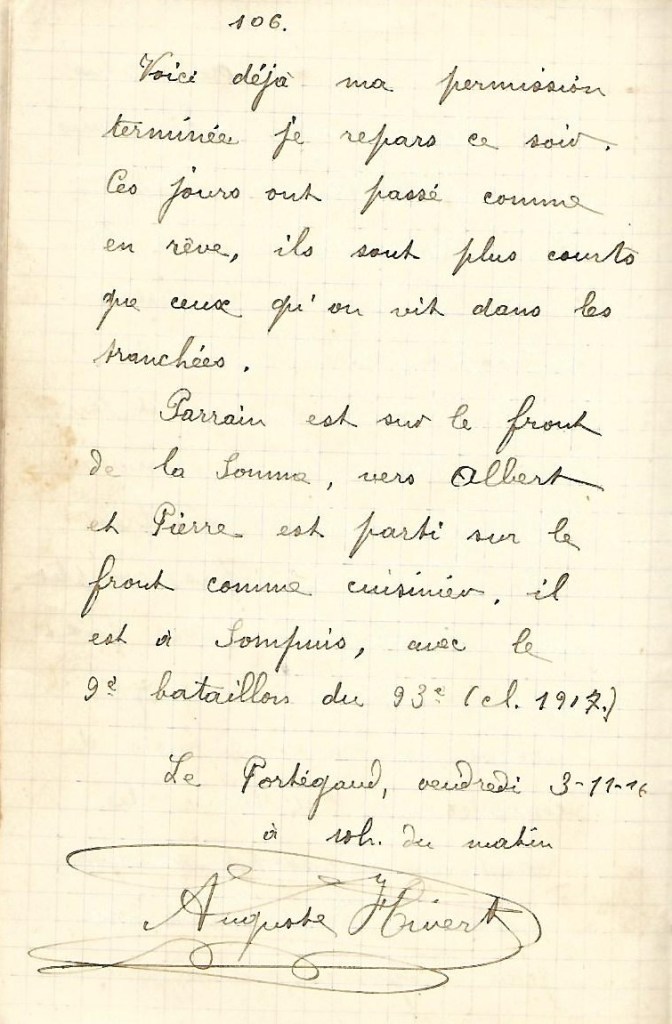 106.
Voici déjà ma permission
terminée je repars ce soir.
Ces jours ont passé comme
en rêve, ils sont plus courts
que ceux qu'on vit dans les
tranchées.
Parrain est sur le front
de la Somme, vers Albert
et Pierre est parti sur le
front comme cuisinier, il
est à Sompuis, avec le
9e bataillon du 93e (cl. 1917.)
Le Portégaud, vendredi 3-11-16
à 10h. du matin
Auguste Hivert